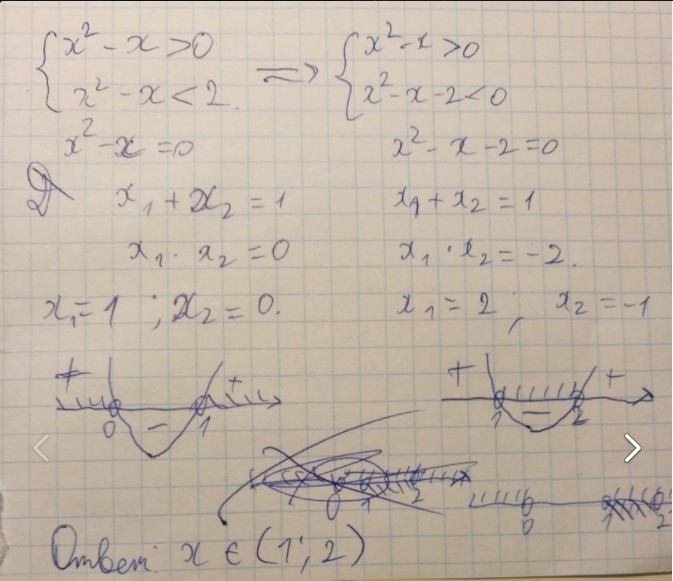 { x² - x > 0 ⇒ { x² - x > 0
x² - x < 2. x² - x - 2 < 0
x² - x = 0 x² - x - 2 = 0
D x₁ + x₂ = 1 x₁ + x₂ = 1
x₁ · x₂ = 0 x₁ · x₂ = -2.
x₁ = 1 ; x₂ = 0. x₁ = 2 ; x₂ = -1
+ - + + - +
0 1 1 2
0 1 2 0 1 2
Ответ: x ∈ (1; 2)